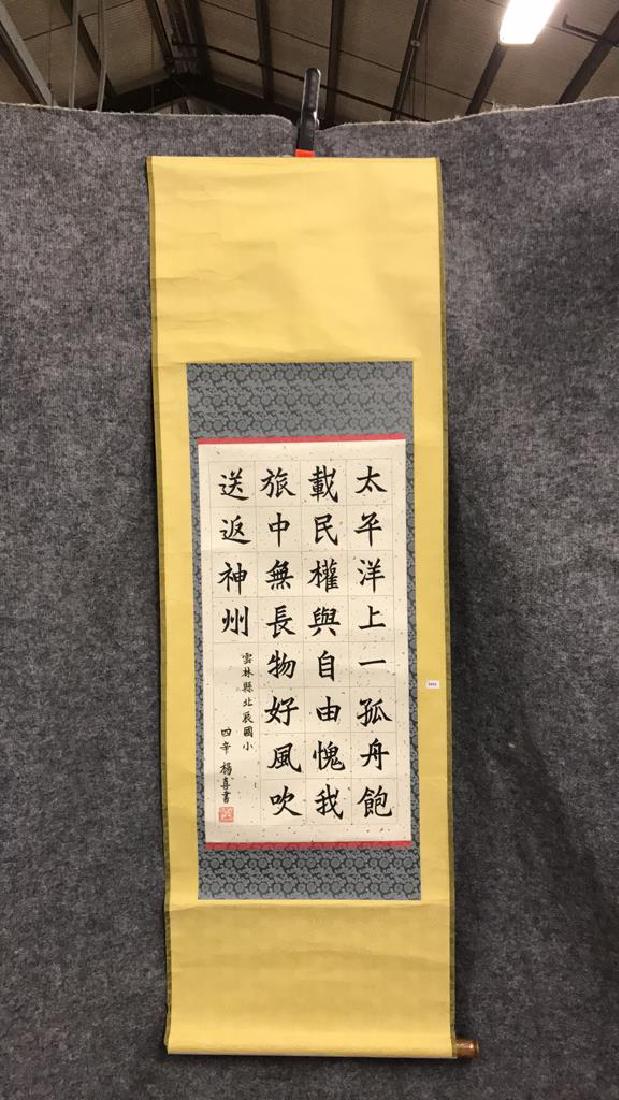 太平洋上一孤舟飽
載民權與自由愧我
旅中無長物好風吹
送返神州
雲林縣北辰國小
四辛 楊喜書